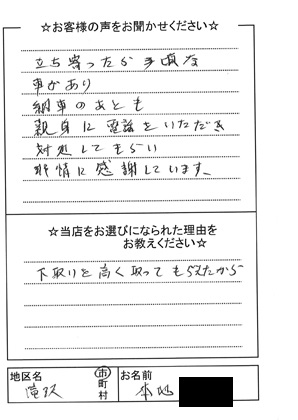 ☆お客様の声をお聞かせください☆
立ち寄ったが手頃な
車があり
納車のあとも
親身に電話をいただき
対処してもらい
非情に感謝しています。
☆当店をお選びになられた理由を
お教えください☆
下取りを高く取ってもらえたから
地区名
滝沢
市
町
村
お名前
本地